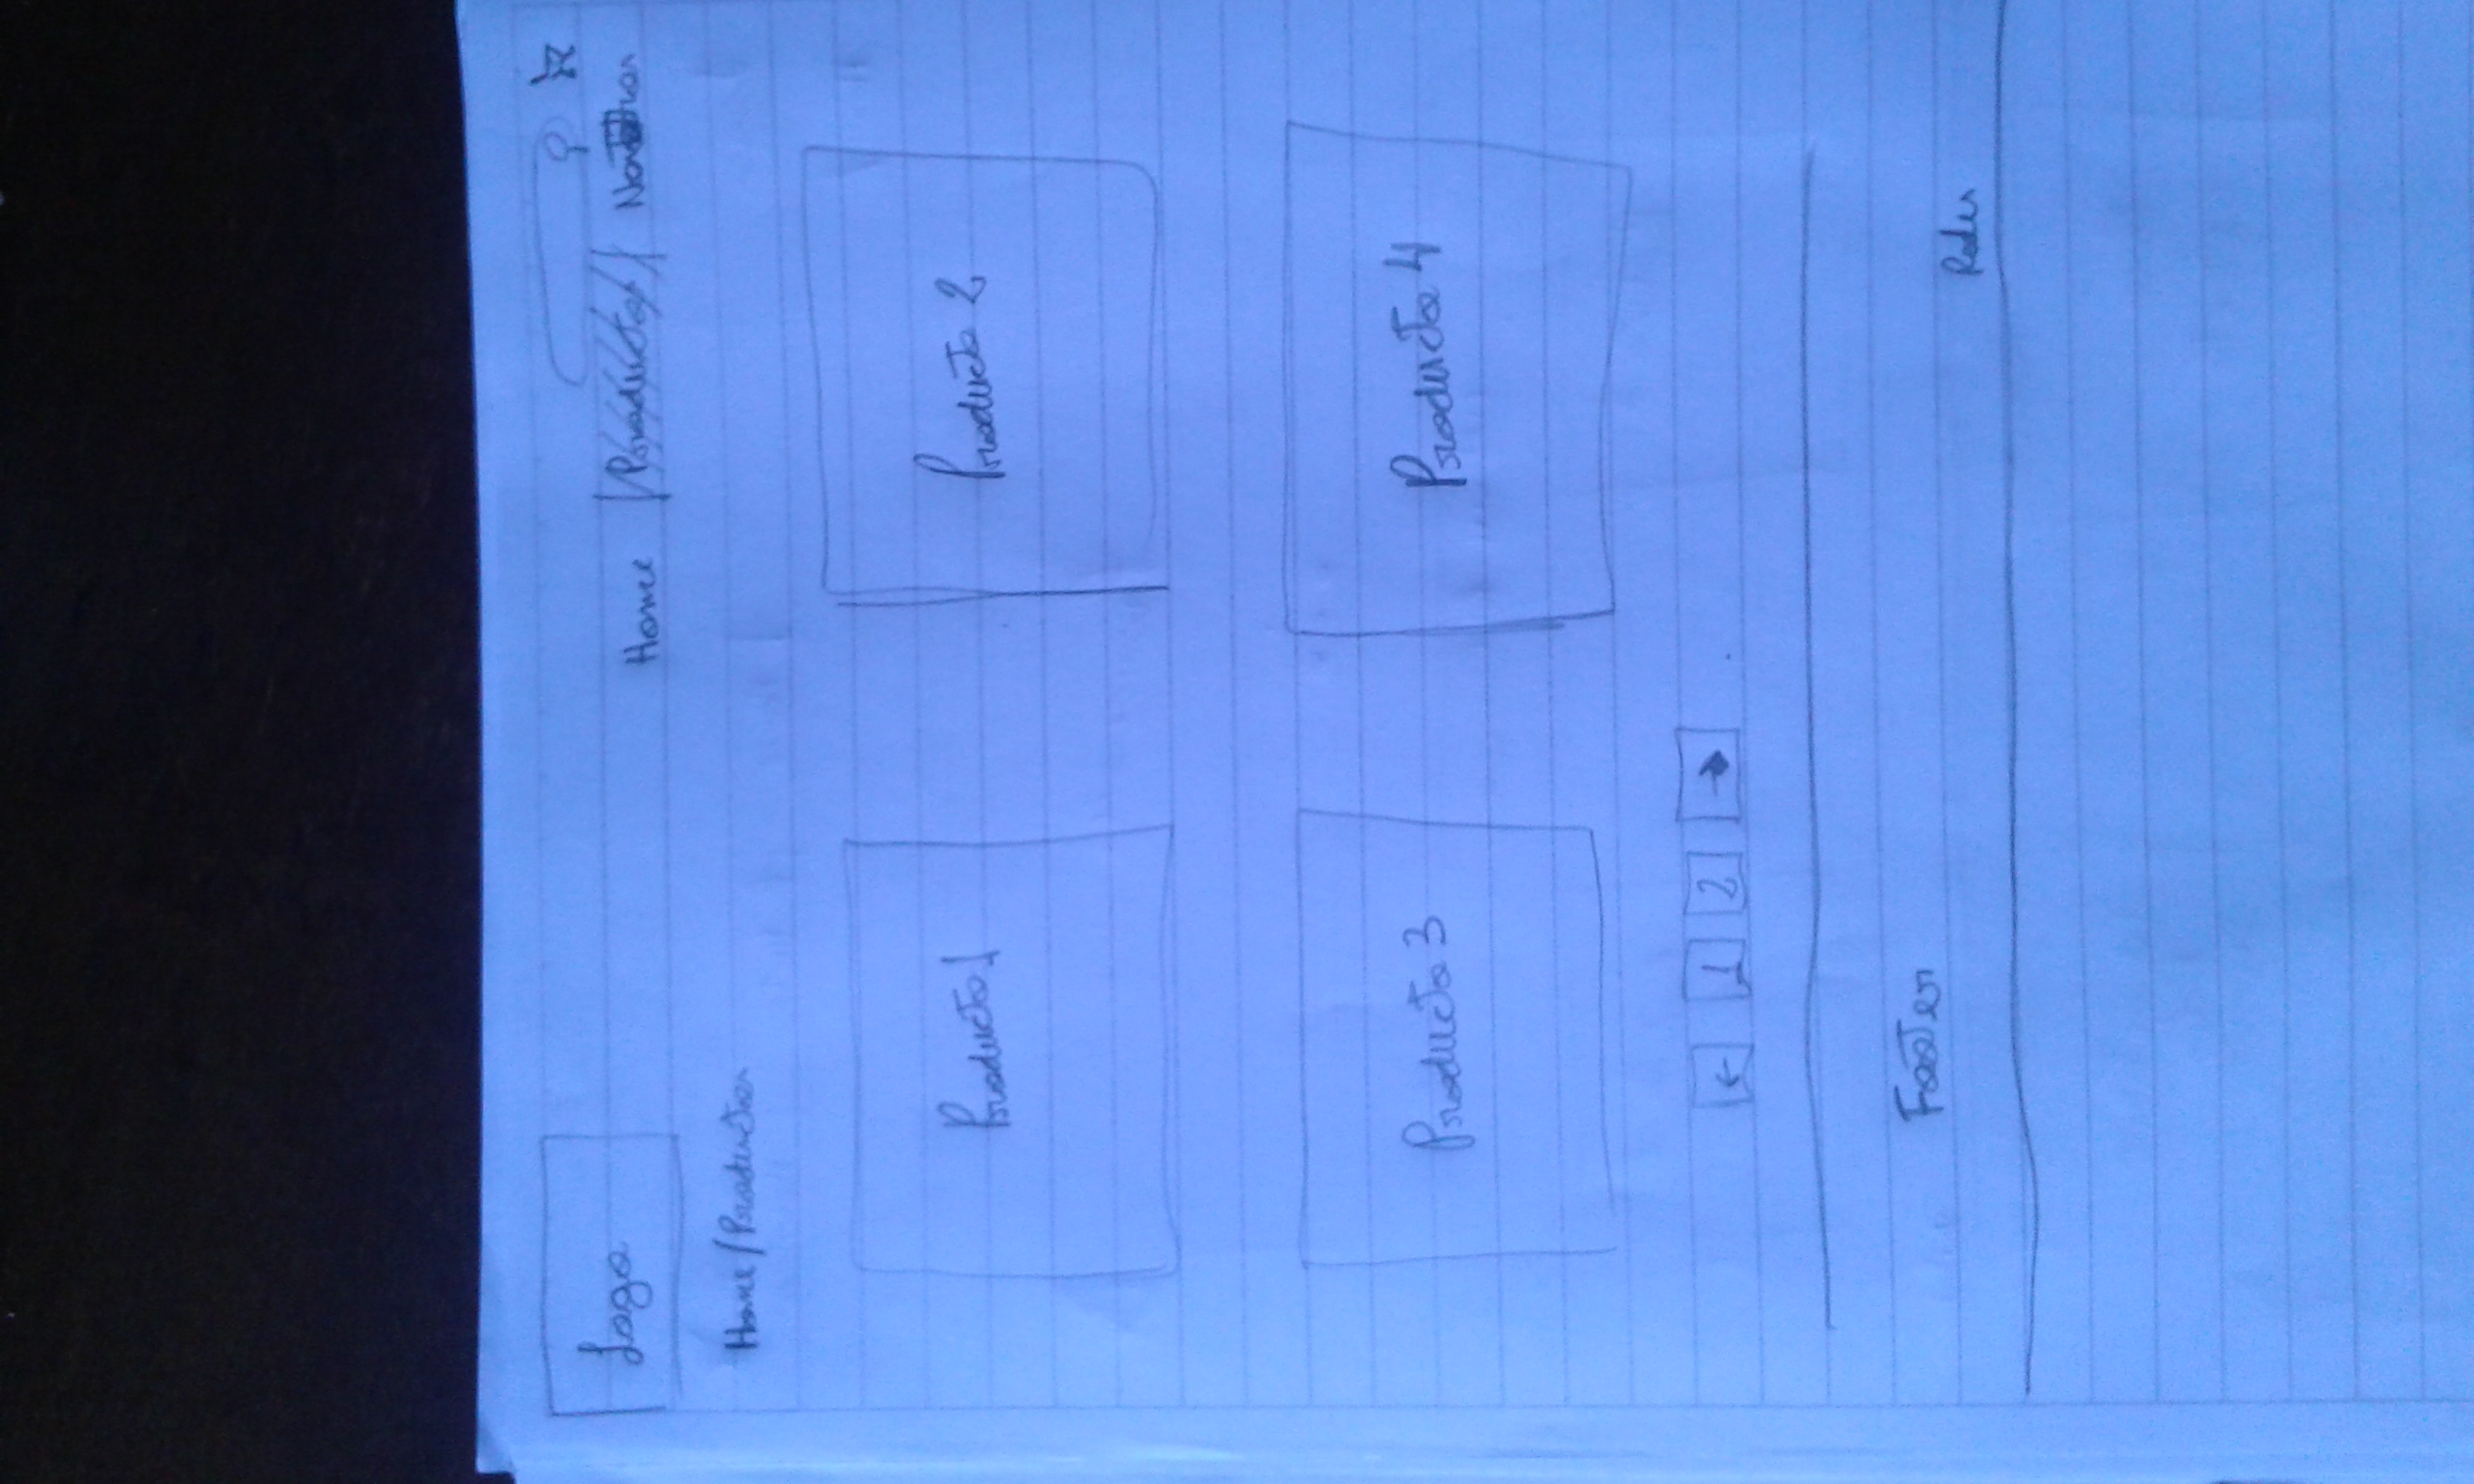 Logo
Home Productos
Home/Productos
Producto 1
Producto 2
Producto 3
Producto 4
← 1 2 →
Footer
Redes